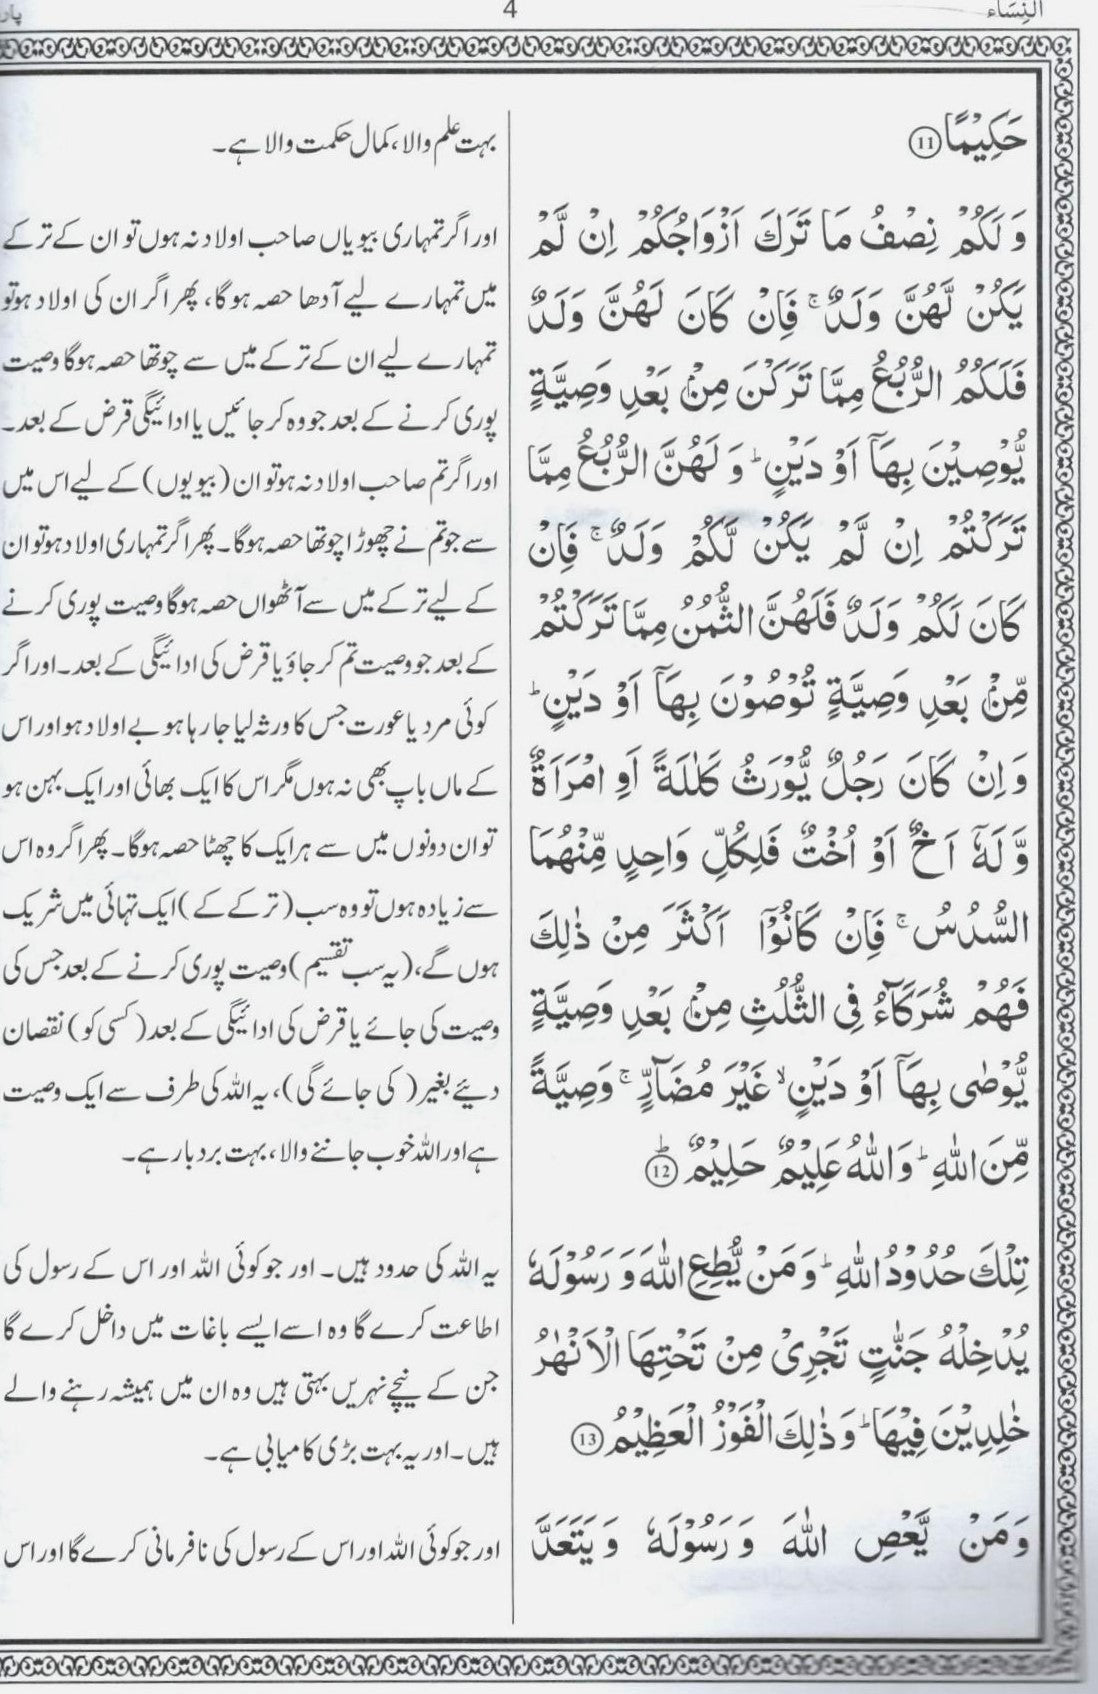 النِّسَاء
4
حَكِيْمًا ⑪
وَ لَكُمْ نِصْفُ مَا تَرَكَ اَزْوَاجُكُمْ اِنْ لَّمْ
يَكُنْ لَّهُنَّ وَلَدٌ ۚ فَاِنْ كَانَ لَهُنَّ وَلَدٌ
فَلَكُمُ الرُّبُعُ مِمَّا تَرَكْنَ مِنْۢ بَعْدِ وَصِيَّةٍ
يُّوْصِيْنَ بِهَاۤ اَوْ دَيْنٍ ؕ وَ لَهُنَّ الرُّبُعُ مِمَّا
تَرَكْتُمْ اِنْ لَّمْ يَكُنْ لَّكُمْ وَلَدٌ ۚ فَاِنْ
كَانَ لَكُمْ وَلَدٌ فَلَهُنَّ الثُّمُنُ مِمَّا تَرَكْتُمْ
مِّنْۢ بَعْدِ وَصِيَّةٍ تُوْصُوْنَ بِهَاۤ اَوْ دَيْنٍ ؕ
وَ اِنْ كَانَ رَجُلٌ يُّوْرَثُ كَلٰلَةً اَوِ امْرَاَةٌ
وَّ لَهٗۤ اَخٌ اَوْ اُخْتٌ فَلِكُلِّ وَاحِدٍ مِّنْهُمَا
السُّدُسُ ۚ فَاِنْ كَانُوْۤا اَكْثَرَ مِنْ ذٰلِكَ
فَهُمْ شُرَكَآءُ فِى الثُّلُثِ مِنْۢ بَعْدِ وَصِيَّةٍ
يُّوْصٰى بِهَاۤ اَوْ دَيْنٍ ۙ غَيْرَ مُضَآرٍّ ۚ وَصِيَّةً
مِّنَ اللّٰهِ ؕ وَ اللّٰهُ عَلِيْمٌ حَلِيْمٌ ؕ ⑫
تِلْكَ حُدُوْدُ اللّٰهِ ؕ وَ مَنْ يُّطِعِ اللّٰهَ وَ رَسُوْلَهٗ
يُدْخِلْهُ جَنّٰتٍ تَجْرِىْ مِنْ تَحْتِهَا الْاَنْهٰرُ
خٰلِدِيْنَ فِيْهَا ؕ وَ ذٰلِكَ الْفَوْزُ الْعَظِيْمُ ⑬
وَ مَنْ يَّعْصِ اللّٰهَ وَ رَسُوْلَهٗ وَ يَتَعَدَّ
بہت علم والا، کمال حکمت والا ہے۔
اور اگر تمہاری بیویاں صاحب اولاد نہ ہوں تو ان کے ترکے
میں تمہارے لیے آدھا حصہ ہوگا، پھر اگر ان کی اولاد ہو تو
تمہارے لیے ان کے ترکے میں سے چوتھا حصہ ہوگا وصیت
پوری کرنے کے بعد جو وہ کر جائیں یا ادائیگی قرض کے بعد۔
اور اگر تم صاحب اولاد نہ ہو تو ان (بیویوں) کے لیے اس میں
سے جو تم نے چھوڑا چوتھا حصہ ہوگا۔ پھر اگر تمہاری اولاد ہو تو ان
کے لیے ترکے میں سے آٹھواں حصہ ہوگا وصیت پوری کرنے
کے بعد جو وصیت تم کر جاؤ یا قرض کی ادائیگی کے بعد۔ اور اگر
کوئی مرد یا عورت جس کا ورثہ لیا جا رہا ہو بے اولاد ہو اور اس
کے ماں باپ بھی نہ ہوں مگر اس کا ایک بھائی اور ایک بہن ہو
تو ان دونوں میں سے ہر ایک کا چھٹا حصہ ہوگا۔ پھر اگر وہ اس
سے زیادہ ہوں تو وہ سب (ترکے کے) ایک تہائی میں شریک
ہوں گے، (یہ سب تقسیم) وصیت پوری کرنے کے بعد جس کی
وصیت کی جائے یا قرض کی ادائیگی کے بعد (کسی کو) نقصان
دیئے بغیر (کی جائے گی)، یہ اللہ کی طرف سے ایک وصیت
ہے اور اللہ خوب جاننے والا، بہت بردبار ہے۔
یہ اللہ کی حدود ہیں۔ اور جو کوئی اللہ اور اس کے رسول کی
اطاعت کرے گا وہ اسے ایسے باغات میں داخل کرے گا
جن کے نیچے نہریں بہتی ہیں وہ ان میں ہمیشہ رہنے والے
ہیں۔ اور یہ بہت بڑی کامیابی ہے۔
اور جو کوئی اللہ اور اس کے رسول کی نافرمانی کرے گا اور اس